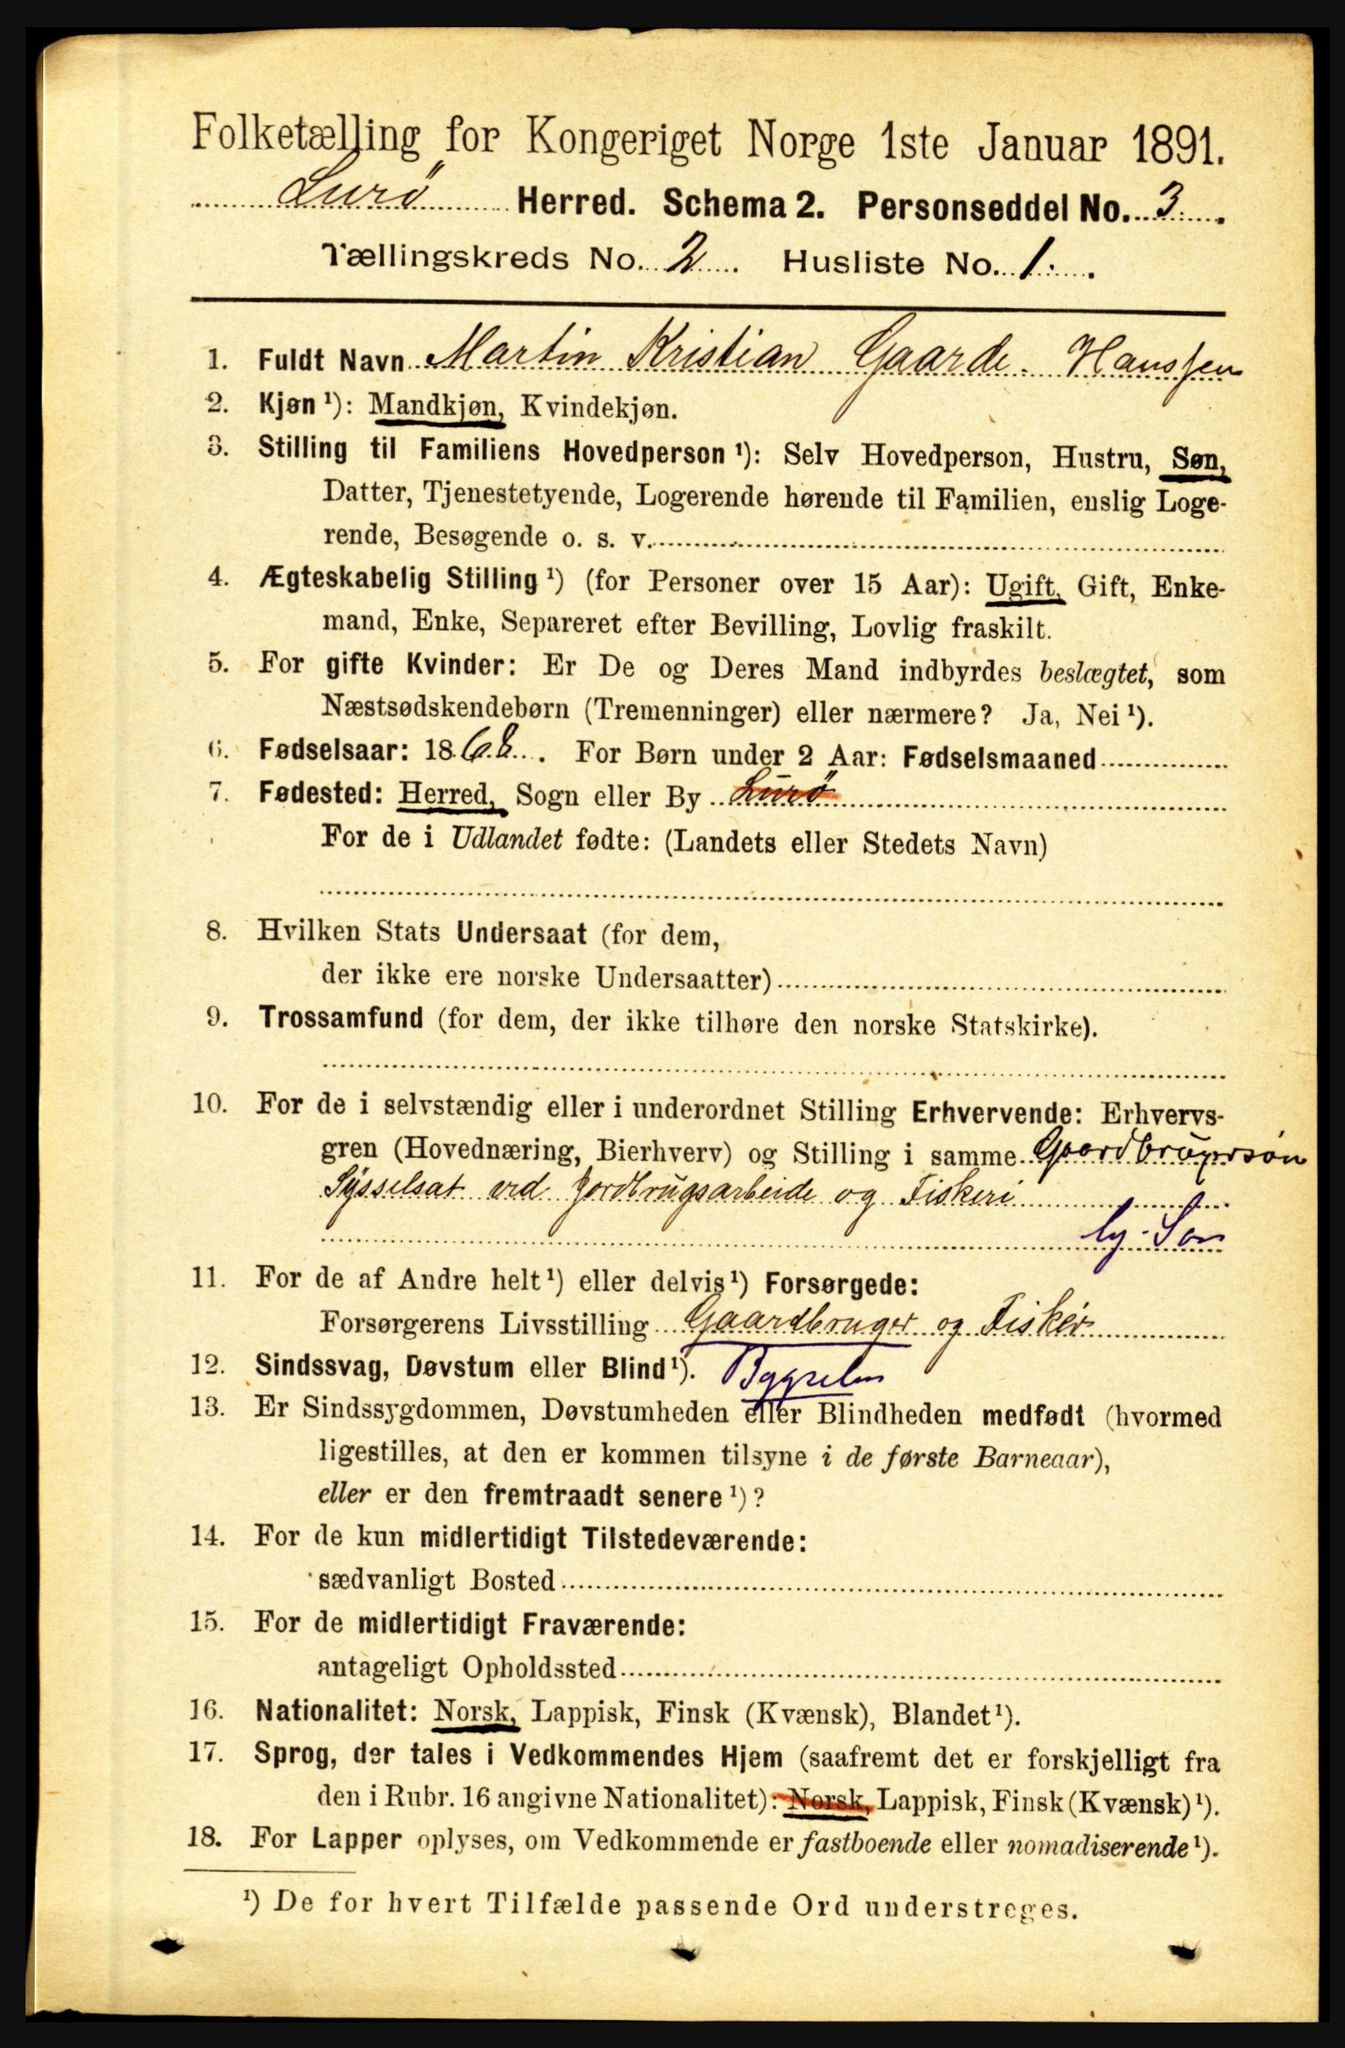 Folketælling for Kongeriget Norge 1ste Januar 1891.
Lurø Herred. Schema 2. Personseddel No. 3.
Tællingskreds No. 2. Husliste No. 1.
1. Fuldt Navn Martin Kristian Gaarde. Hanssen
2. Kjøn ¹): Mandkjøn, Kvindekjøn.
3. Stilling til Familiens Hovedperson ¹): Selv Hovedperson, Hustru, Søn,
Datter, Tjenestetyende, Logerende hørende til Familien, enslig Loge-
rende, Besøgende o. s. v.
4. Ægteskabelig Stilling ¹) (for Personer over 15 Aar): Ugift, Gift, Enke-
mand, Enke, Separeret efter Bevilling, Lovlig fraskilt.
5. For gifte Kvinder: Er De og Deres Mand indbyrdes beslægtet, som
Næstsødskendebørn (Tremenninger) eller nærmere? Ja, Nei ¹).
6. Fødselsaar: 1868. For Børn under 2 Aar: Fødselsmaaned
7. Fødested: Herred, Sogn eller By Lurø
For de i Udlandet fødte: (Landets eller Stedets Navn)
8. Hvilken Stats Undersaat (for dem,
der ikke ere norske Undersaatter)
9. Trossamfund (for dem, der ikke tilhøre den norske Statskirke).
10. For de i selvstændig eller i underordnet Stilling Erhvervende: Erhvervs-
gren (Hovednæring, Bierhverv) og Stilling i samme Gaardbrugersøn
Sysselsat ved Jordbrugsarbeide og Fiskeri
Søn
11. For de af Andre helt ¹) eller delvis ¹) Forsørgede:
Forsørgerens Livsstilling Gaardbruger og Fisker
12. Sindssvag, Døvstum eller Blind ¹). Bygselm
13. Er Sindssygdommen, Døvstumheden eller Blindheden medfødt (hvormed
ligestilles, at den er kommen tilsyne i de første Barneaar),
eller er den fremtraadt senere ¹)?
14. For de kun midlertidigt Tilstedeværende:
sædvanligt Bosted
15. For de midlertidigt Fraværende:
antageligt Opholdssted
16. Nationalitet: Norsk, Lappisk, Finsk (Kvænsk), Blandet ¹).
17. Sprog, der tales i Vedkommendes Hjem (saafremt det er forskjelligt fra
den i Rubr. 16 angivne Nationalitet): Norsk, Lappisk, Finsk (Kvænsk) ¹).
18. For Lapper oplyses, om Vedkommende er fastboende eller nomadiserende ¹).
¹) De for hvert Tilfælde passende Ord understreges.